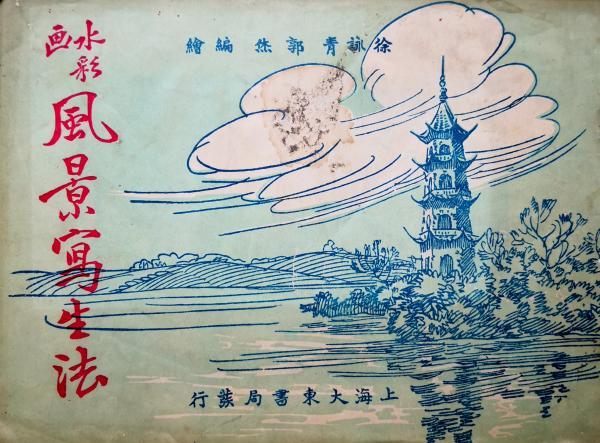 徐詠青 郭烋 編繪
水彩画
風景寫生法
上海大東書局發行